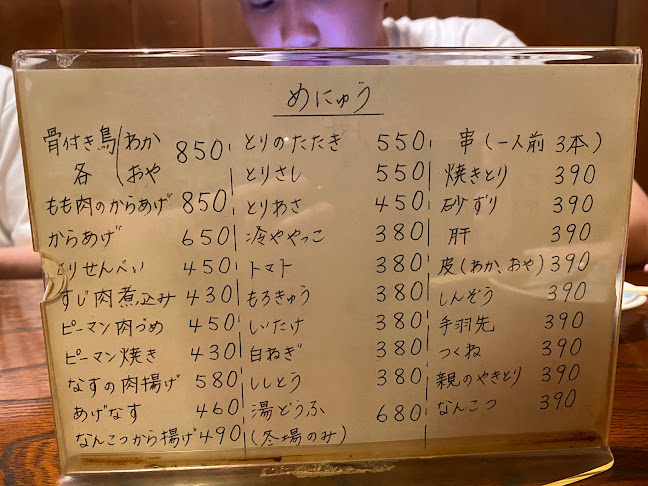 めにゅう
骨付き鳥(わか 850
各(おや
もも肉のからあげ 850
からあげ 650
とりせんべい 450
すじ肉煮込み 430
ピーマン肉づめ 450
ピーマン焼き 430
なすの肉揚げ 580
あげなす 460
なんこつから揚げ 490
とりのたたき 550
とりさし 550
とりわさ 450
冷ややっこ 380
トマト 380
もろきゅう 380
しいたけ 380
白ねぎ 380
ししとう 380
湯どうふ 680
(冬場のみ)
串(一人前 3本)
焼きとり 390
砂ずり 390
肝 390
皮(わか、おや) 390
しんぞう 390
手羽先 390
つくね 390
親のやきとり 390
なんこつ 390